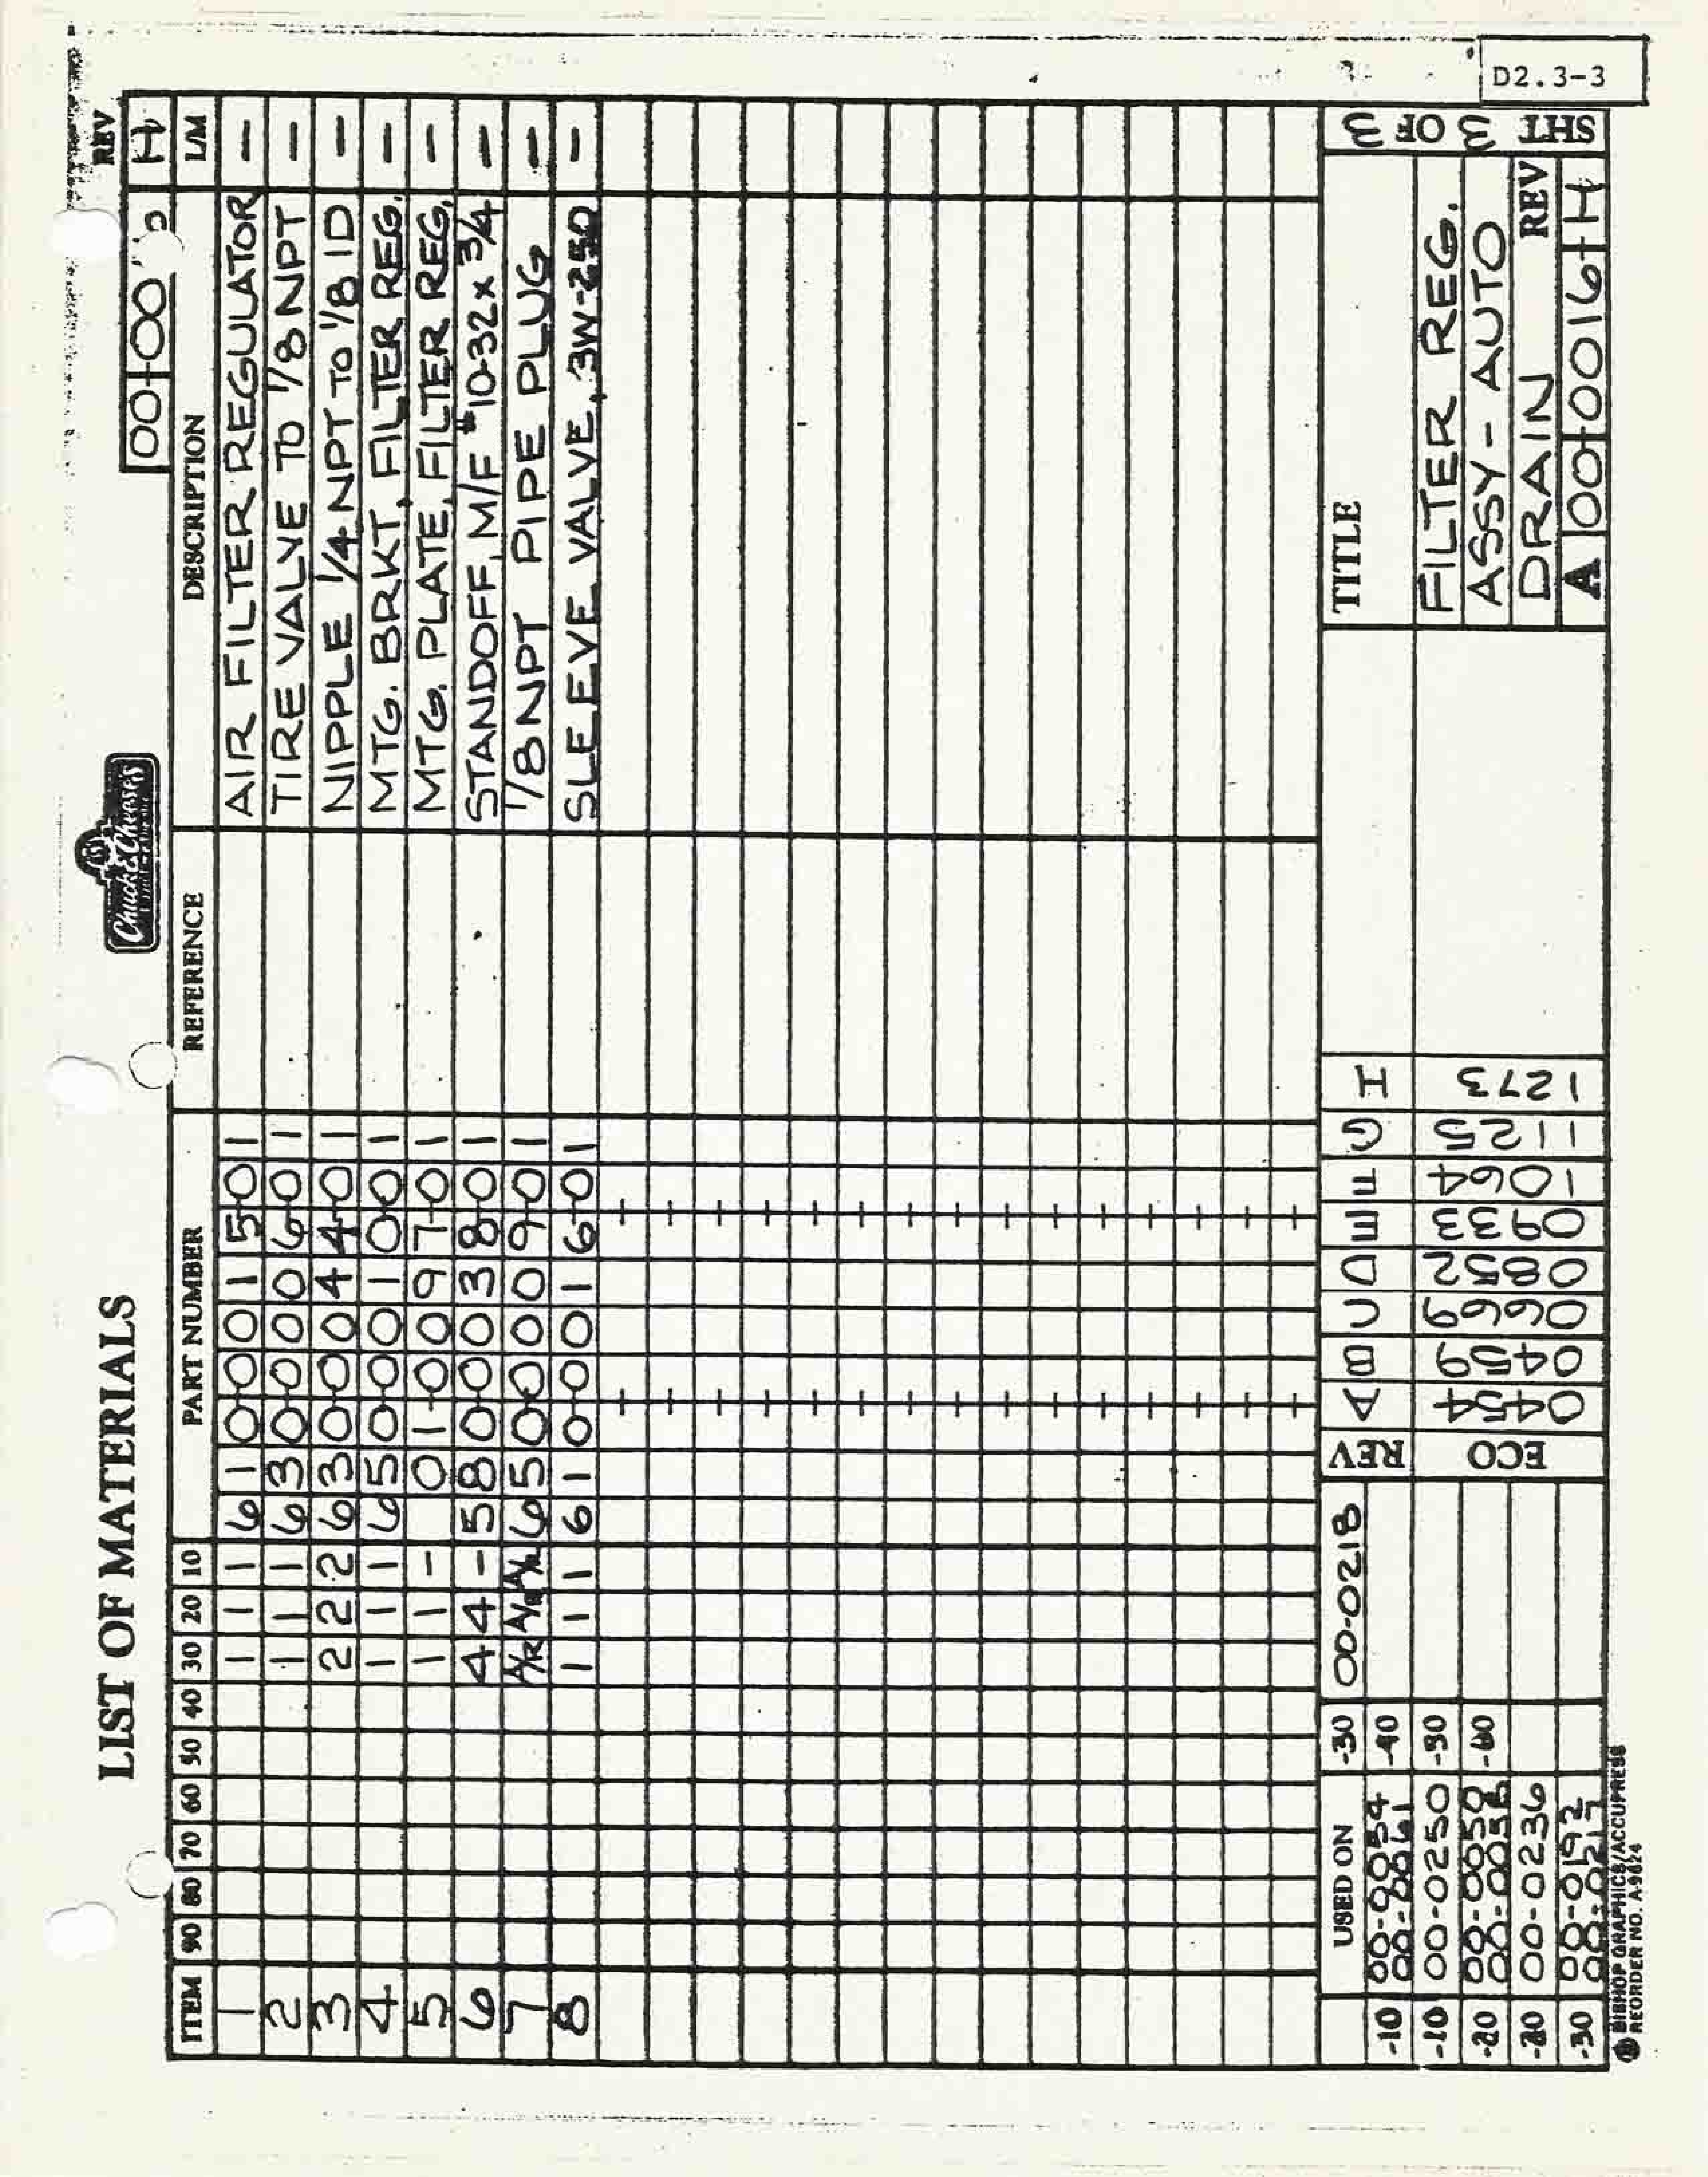 D2.3-3
Chuck E. Cheese's
REV
LIST OF MATERIALS 00-00 H
ITEM 90 80 70 60 50 40 30 20 10 PART NUMBER REFERENCE DESCRIPTION L/M
1 1 1 1 6 1 0-0 0 1 5-0 1 AIR FILTER REGULATOR -
2 1 1 1 6 3 0-0 0 0 6-0 1 TIRE VALVE TO 1/8 NPT -
3 2 2 2 6 3 0-0 0 4 4-0 1 NIPPLE 1/4 NPT TO 1/8 ID -
4 1 1 1 6 5 0-0 0 1 0-0 1 MTG. BRKT, FILTER REG. -
5 1 1 - 0 1-0 0 9 7-0 1 MTG. PLATE, FILTER REG. -
6 4 4 - 5 8 0-0 0 3 8-0 1 STANDOFF, M/F #10-32 x 3/4 -
7 A/R A/R A/R 6 5 0-0 0 0 9-0 1 1/8 NPT PIPE PLUG -
8 1 1 1 6 1 0-0 0 1 6-0 1 SLEEVE VALVE, 3W-250 -
USED ON -30 00-0218
-10 00-0054 -40
00-0061
-10 00-0250 -50
-20 00-0050 -60
-20 00-0236
-30 00-0192
00-0217
REV A B C D E F G H
ECO 0454 0459 0669 0852 0933 1064 1125 1273
TITLE
FILTER REG.
ASSY - AUTO
DRAIN REV
A 00-0016-H
SHT 3 OF 3
BISHOP GRAPHICS/ACCUPRESS
REORDER NO. A-9624